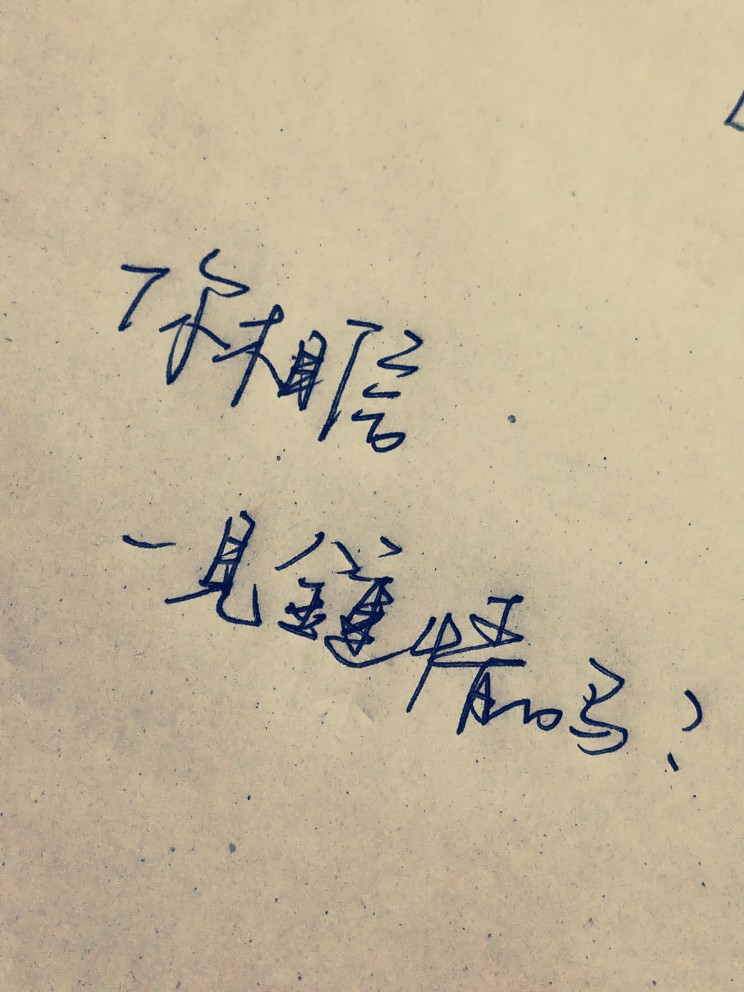 你相信
一見鍾情吗?